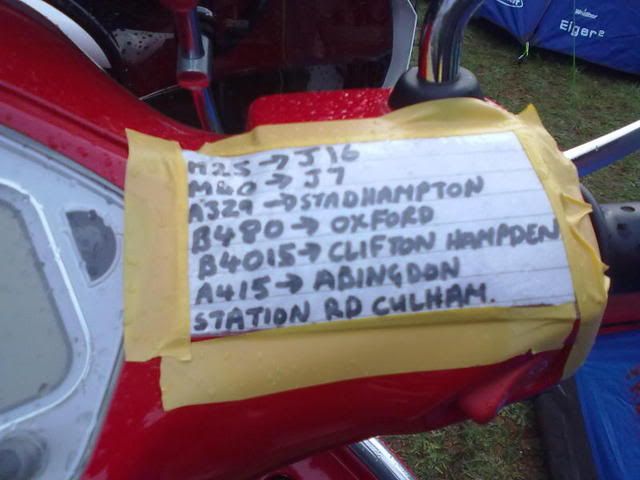 M25→J16
M40→J7
A329→STADHAMPTON
B480→OXFORD
B4015→CLIFTON HAMPDEN
A415→ABINGDON
STATION RD CULHAM.
Eiger²